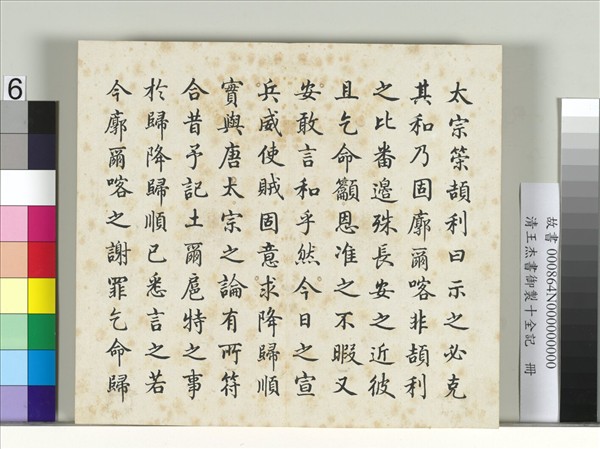 太宗策頡利曰示之必克
其和乃固廓爾喀非頡利
之比番邊殊長安之近彼
且乞命籲恩准之不暇又
安敢言和乎然今日之宣
兵威使賊固意求降歸順
實與唐太宗之論有所符
合昔予記土爾扈特之事
於歸降歸順已悉言之若
今廓爾喀之謝罪乞命歸
故書 000864N000000000
清王杰書御製十全記 冊
6